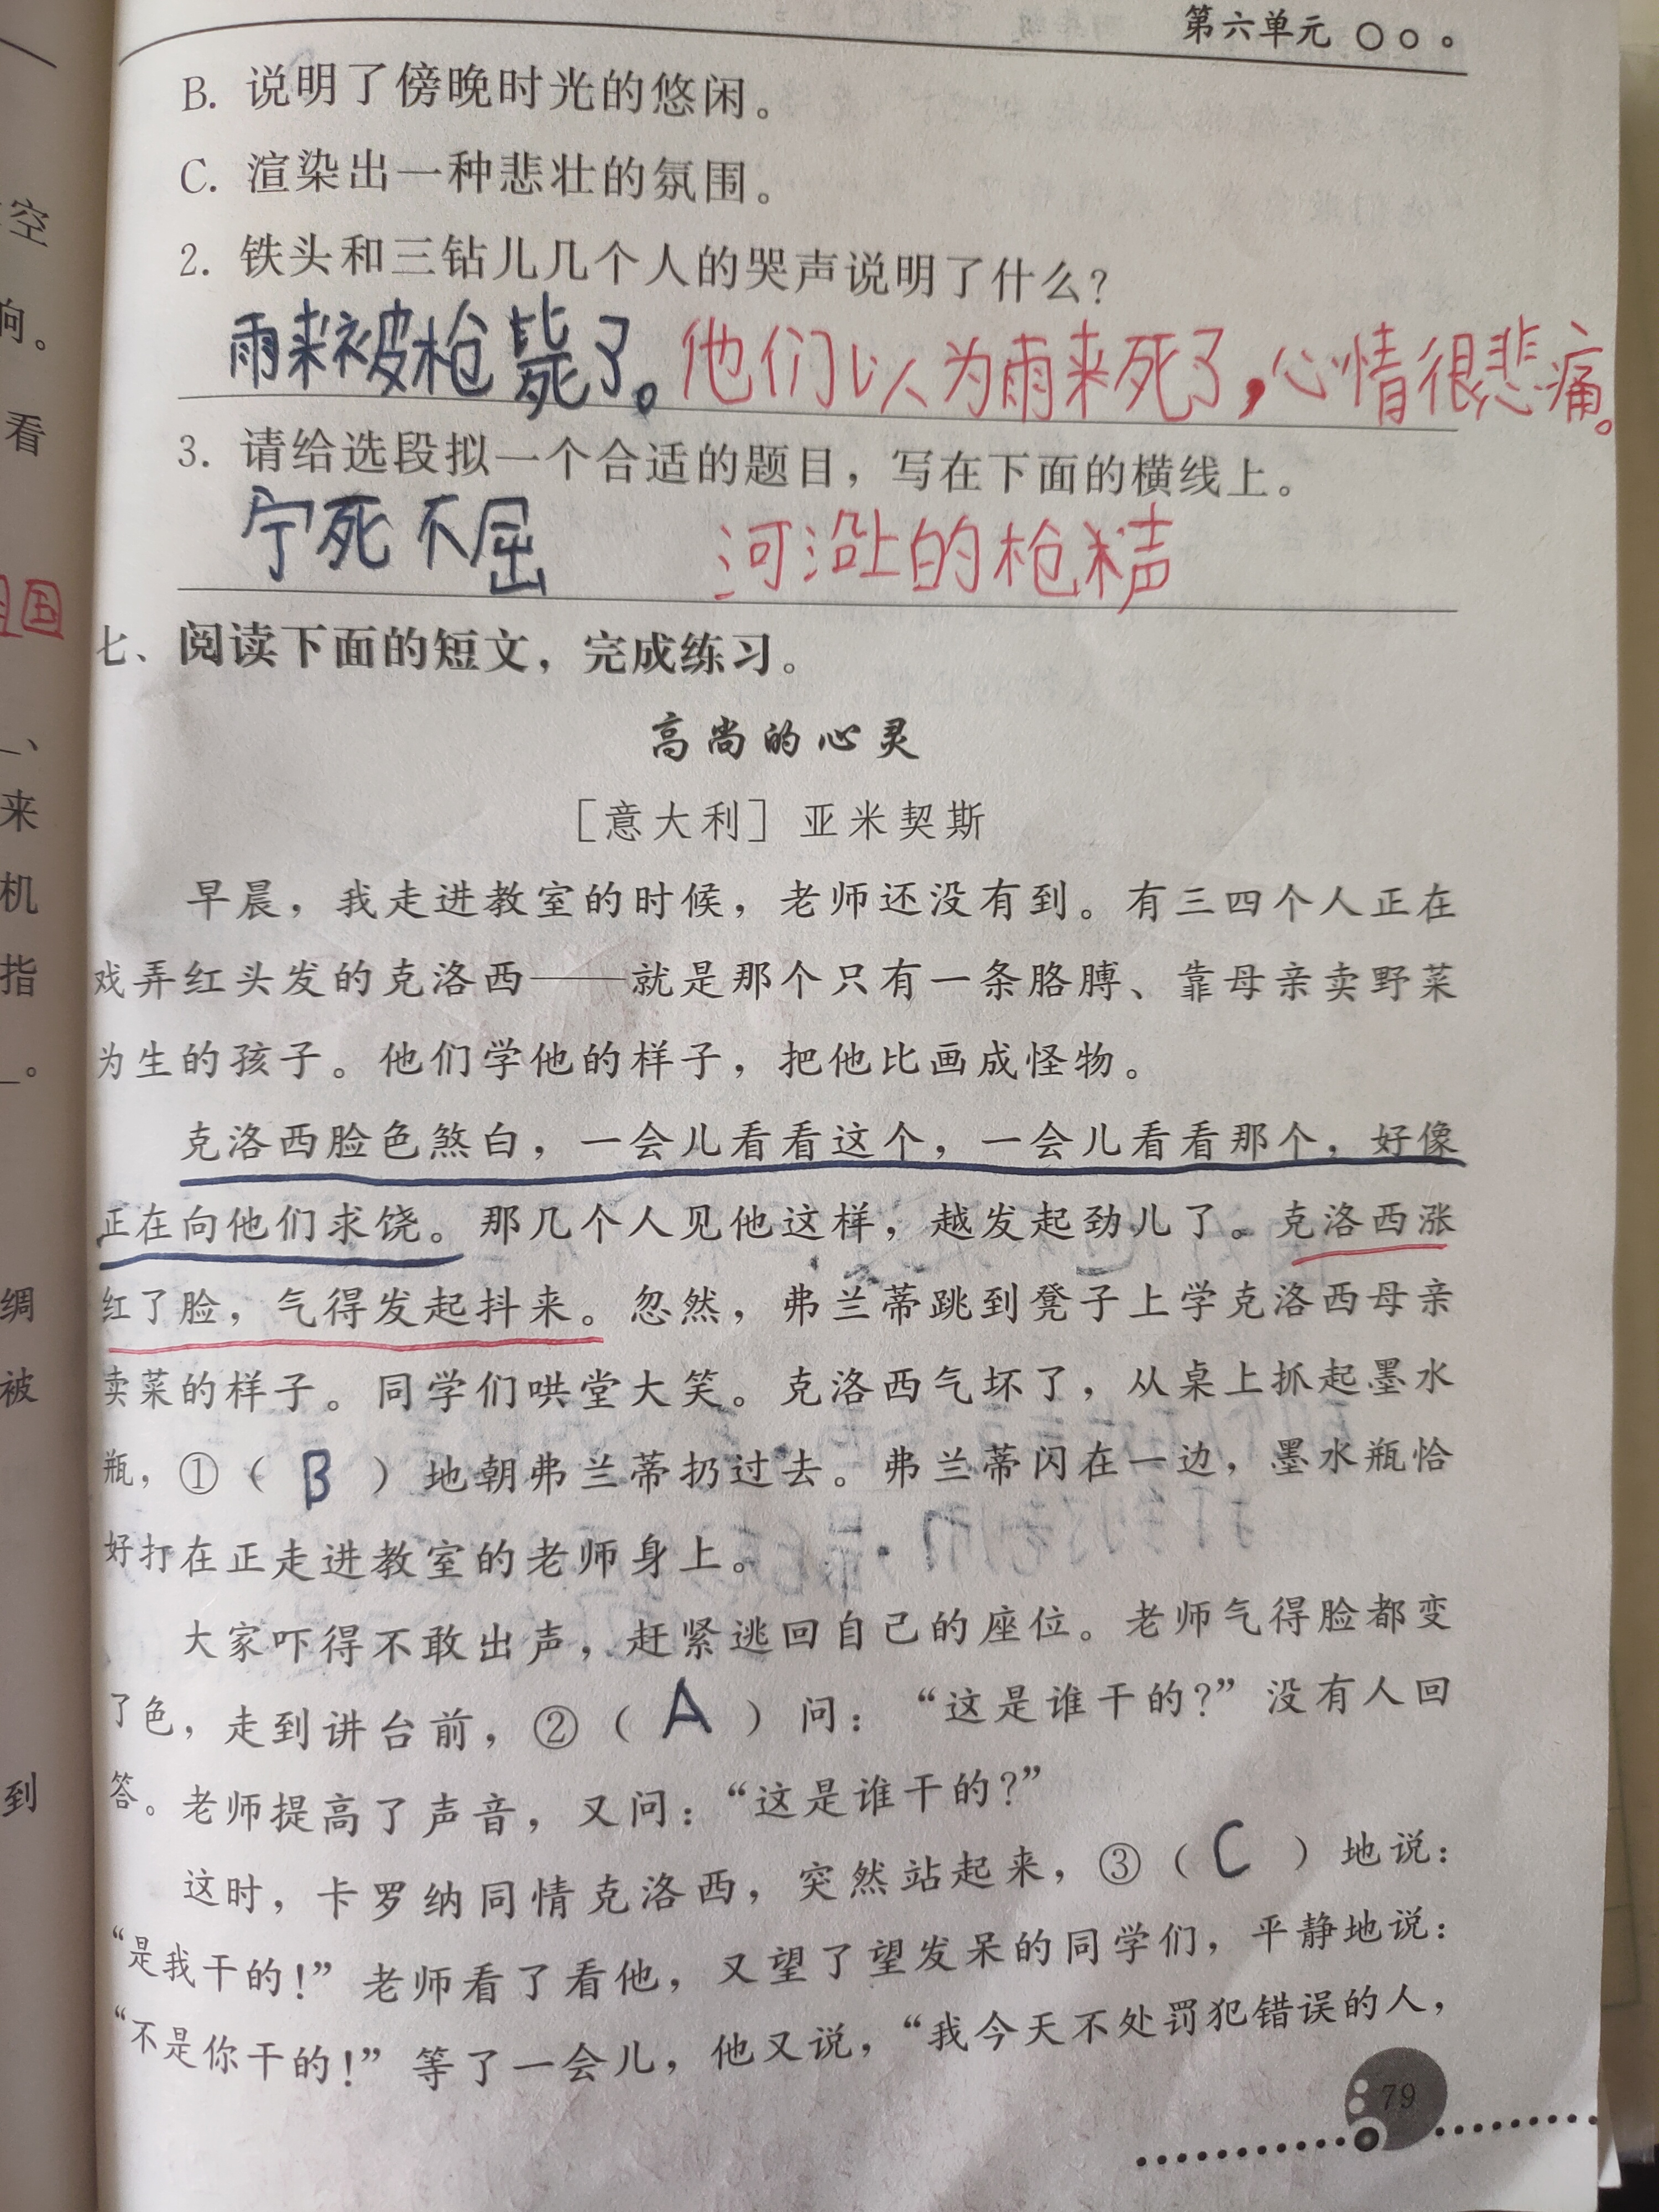 第六单元
B. 说明了傍晚时光的悠闲。
C. 渲染出一种悲壮的氛围。
2. 铁头和三钻儿几个人的哭声说明了什么?
雨来被枪毙了。他们以为雨来死了,心情很悲痛。
3. 请给选段拟一个合适的题目，写在下面的横线上。
宁死不屈 河沿上的枪声
七、阅读下面的短文，完成练习。
高尚的心灵
［意大利］亚米契斯
早晨，我走进教室的时候，老师还没有到。有三四个人正在
戏弄红头发的克洛西——就是那个只有一条胳膊、靠母亲卖野菜
为生的孩子。他们学他的样子，把他比画成怪物。
克洛西脸色煞白，一会儿看看这个，一会儿看看那个，好像
正在向他们求饶。那几个人见他这样，越发起劲儿了。克洛西涨
红了脸，气得发起抖来。忽然，弗兰蒂跳到凳子上学克洛西母亲
卖菜的样子。同学们哄堂大笑。克洛西气坏了，从桌上抓起墨水
瓶，①（ B ）地朝弗兰蒂扔过去。弗兰蒂闪在一边，墨水瓶恰
好打在正走进教室的老师身上。
大家吓得不敢出声，赶紧逃回自己的座位。老师气得脸都变
了色，走到讲台前，②（ A ）问：“这是谁干的?”没有人回
答。老师提高了声音，又问：“这是谁干的?”
这时，卡罗纳同情克洛西，突然站起来，③（ C ）地说：
“是我干的!”老师看了看他，又望了望发呆的同学们，平静地说：
“不是你干的!”等了一会儿，他又说，“我今天不处罚犯错误的人，
79
空
响。
看
国
、
来
机
指
。
绸
被
到